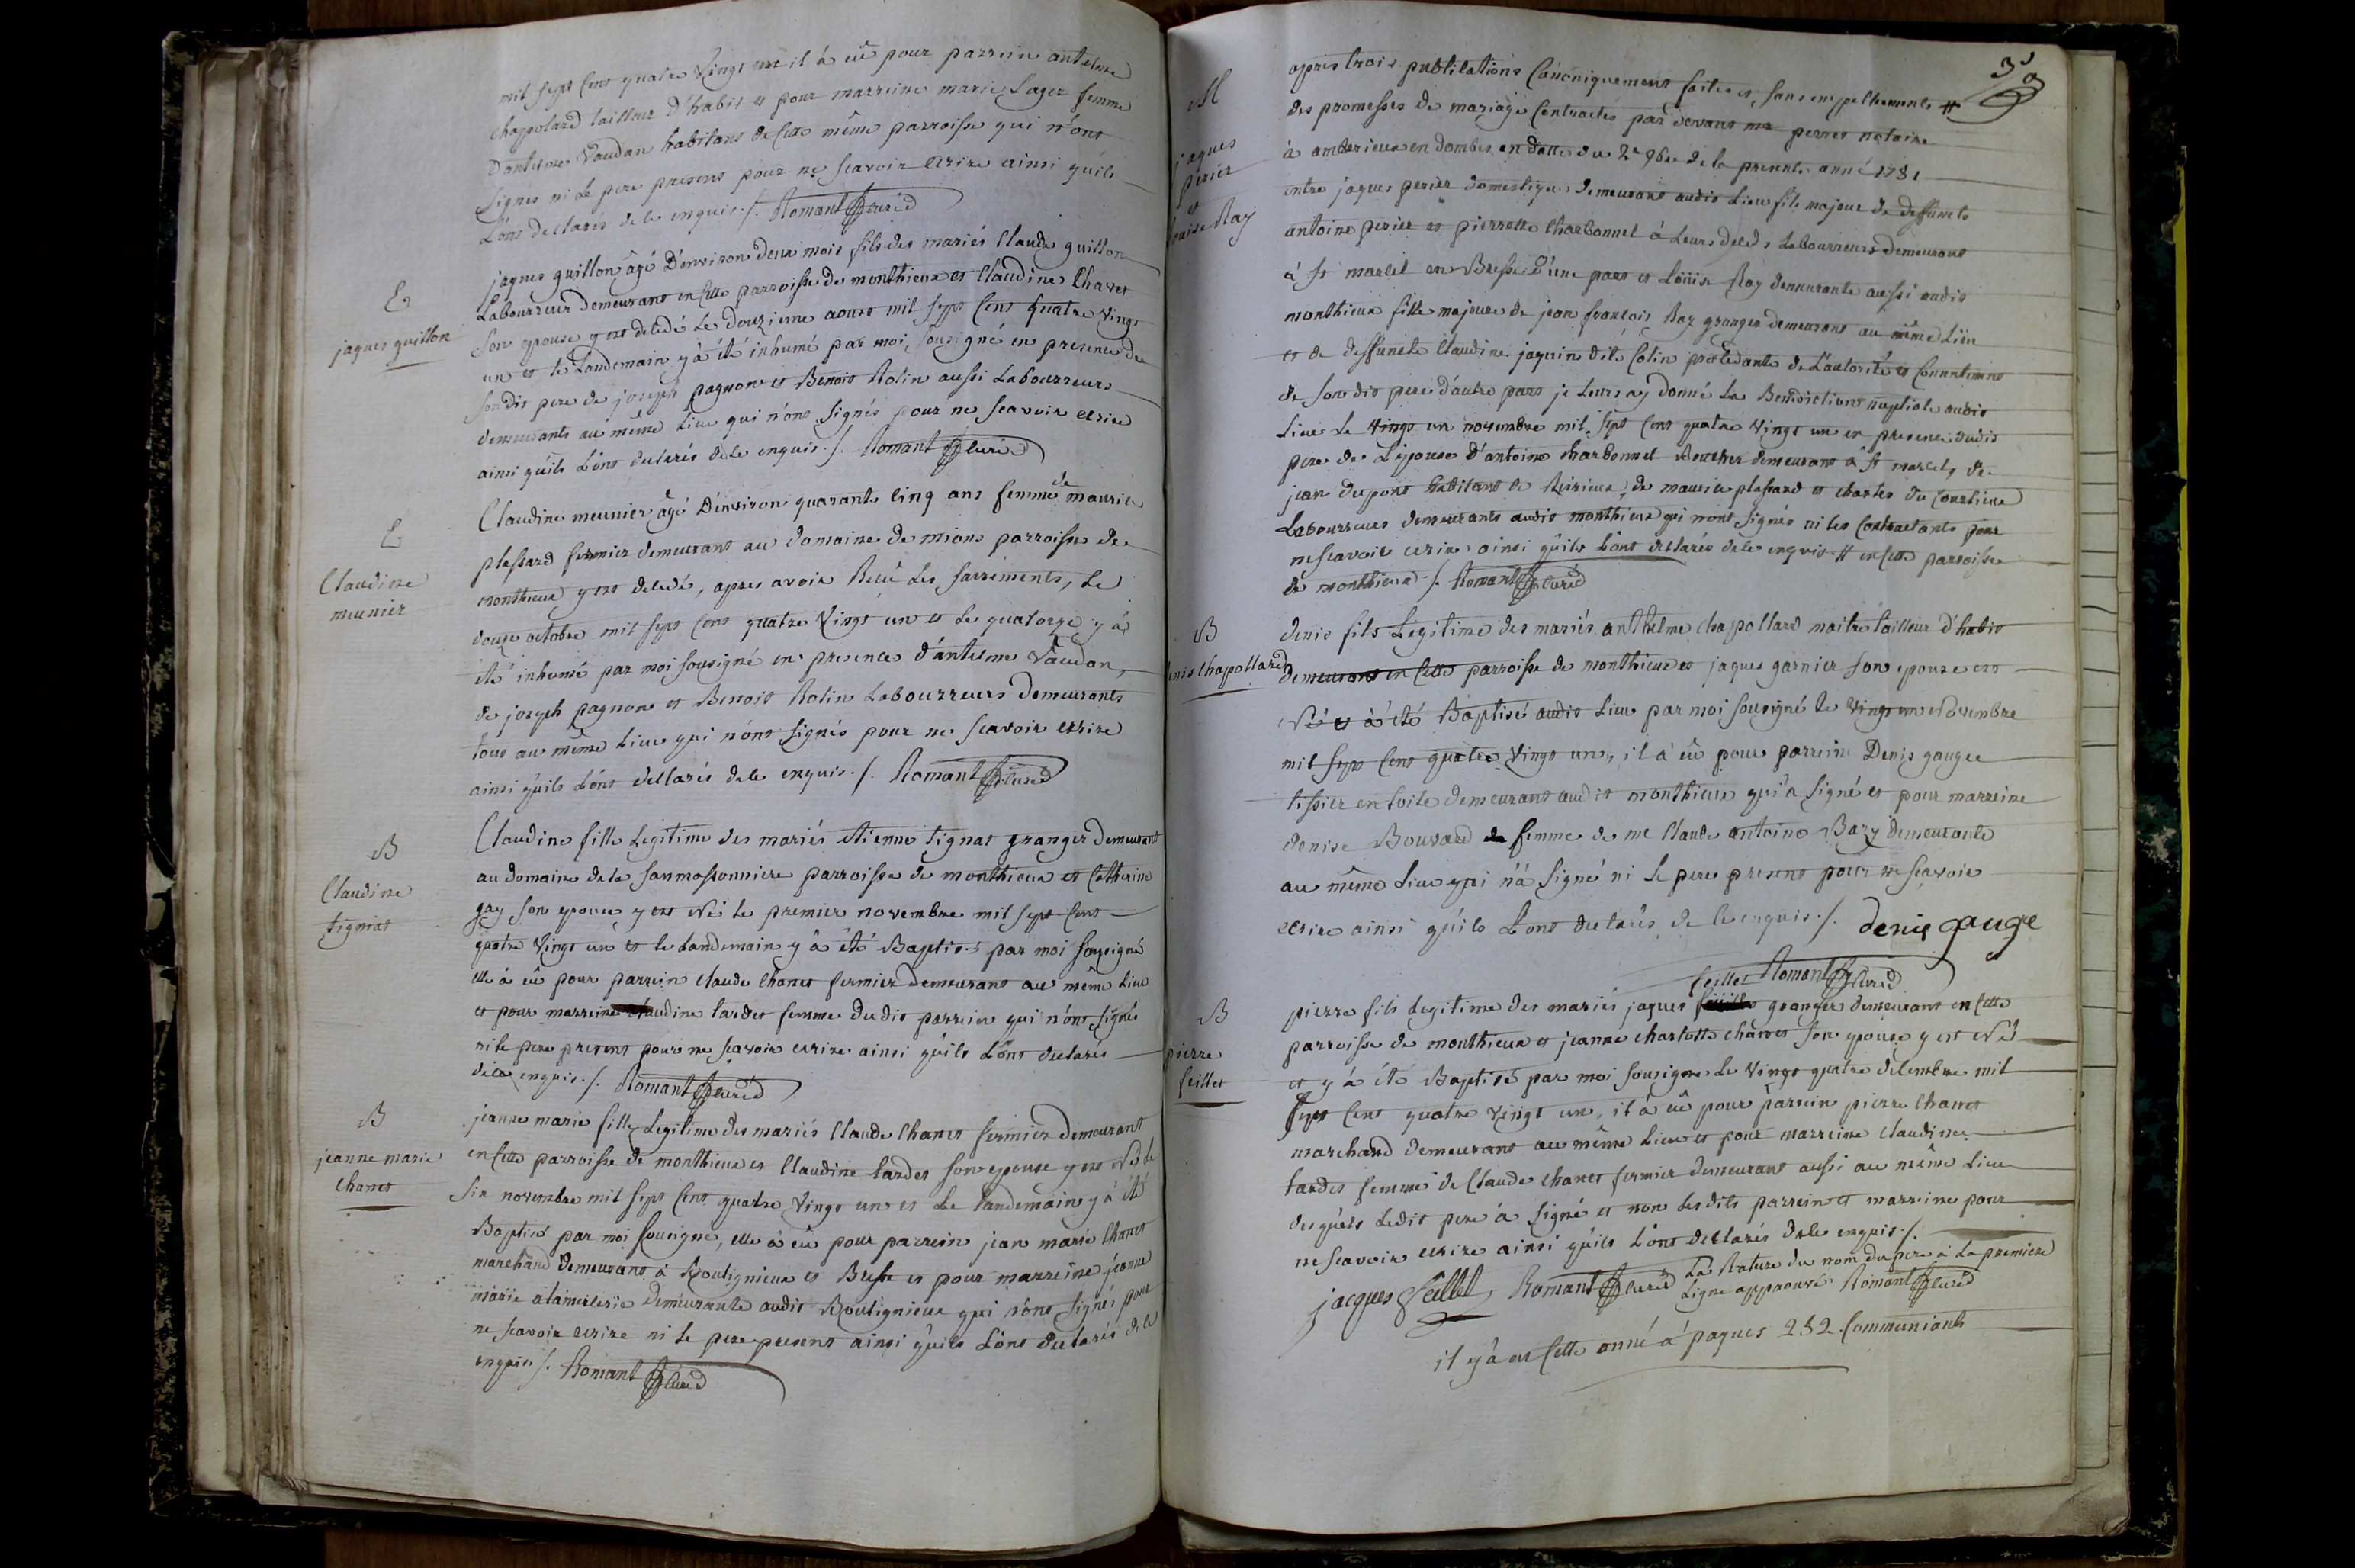 mil sept Cens quatre Vingt un il à eû pour parrein antelme
chappolard tailleur d'habit et pour marreine marie Lager femme
D'antelme Vaudan habitans de Cette même parroisse qui n'ont
Signes ni Le pere presens pour ne Scavoir ecrire ainsi qu'ils
L'ont declarés de le enquis ./. Romant curé
E
jaques guillon
jaques guillon âgé D'environ deux mois fils des mariés Claude guillon
Labourreur demeurant en Cette parroisse de monthieux et Claudine Chanet
Son epouse y est decedé Le douzieme aoust mil sept Cens quatre Vingt
un et le Landemain y à été inhumé par moi, Sousigné en presence du
Son dit pere de joseph pagnon et Benoit Rolin aussi Labourreurs
demeurants au même Lieu qui n'ont Signés pour ne Scavoir ecrire
ainsi qu'ils L'ont declarés de le enquis ./. Romant curé
E
Claudine
meunier
Claudine meunier âgé D'environ quarante cinq ans femme de maurice
plassard fermier demeurant au domaine de mions parroisse de
monthieux y est decedé, apres avoir Recû Les Sacrements, Le
douze octobre mil sept Cens quatre Vingt un et Le quatorze y à
été inhumé par moi sousigné en presence d'antelme Vaudan,
de joseph pagnon et Benoit Rolin Labourreurs demeurants
tous au même Lieu qui n'ont Signés pour ne Scavoir ecrire
ainsi qu'ils L'ont declarés de le enquis ./. Romant curé
B
Claudine
tigniat
Claudine fille Legitime des mariés etienne tignat granger demeurant
au domaine de la Sanmossonniere parroisse de monthieux et Catherine
gay Son epouse y est Né le premier novembre mil sept Cens
quatre Vingt un et le Landemain y à été Baptisé par moi Sousigné
elle à eû pour parrein Claude Chanet fermier demeurant au même Lieu
et pour marreine Claudine tardet femme du dit parrein qui n'ont Signé
ni le pere present pour ne Scavoir ecrire ainsi qu'ils L'ont declarés
de le enquis ./. Romant curé
B
jeanne marie
Chanet
jeanne marie fille Legitime des mariés Claude Chanet fermier demeurant
en Cette parroisse de monthieux et Claudine tardet Son epouse y est Né le
Six novembre mil sept Cens quatre Vingt un et Le Landemain y à été
Baptisé par moi Sousigné, elle à eû pour parrein jean marie Chanet
marchand demeurant à Boulignieux en Bresse et pour marreine jeanne
marie demeurante audit Boulignieux qui n'ont Signés pour
ne Scavoir ecrire ni le pere present ainsi qu'ils L'ont declarés de le
enquis ./. Romant curé
M
jaques
perier
et
Louise Ray
apres trois publications Canoniquement faites et, Sans empechements #
des promesses de mariage Contractés par devant me pernet notaire
à amberieux en dombes en datte du 2e 9bre de la presente anné 1781
entre jaques perier domestique demeurant audit Lieu fils majeur de deffuncts
antoine perier et pierrette Charbonnet à Leurs deceds Labourreurs demeurant
à St marcel en Bresse d'une part et Loüise Ray demeurante aussi audit
monthieux fille majeure de jean francois Ray granger demeurant au même Lieu
et de deffuncte Claudine jaquin dite Colin procedante de L'autorité et Consentement
de Son dit pere d'autre part je Leurs ay donné La Benediction nuptiale audit
Lieu Le Vingt un novembre mil sept Cens quatre Vingt un en presence dudit
pere de L'epouse d'antoine Charbonnet Boucher demeurant à St marcel, de
jean dupont habitant de Reirieux, de maurice plassard et charles du Courtieux
Labourreurs demeurants audit monthieux qui n'ont Signés ni les Contractants pour
ne Scavoir ecrire ainsi qu'ils L'ont declarés de le enquis # en Cette parroisse
de monthieux ./. Romant curé
B
denis Chapollard
denis fils Legitime des mariés anthelme chapollard maitre tailleur d'habit
demeurant en Cette parroisse de monthieux et jaques garnier Son epouse est
Né et à été Baptisé audit Lieu par moi Sousigné le Vingt un Novembre
mil sept Cens quatre Vingt un, il à eû pour parrein Denis gauger
tissier en toile demeurant audit monthieux qui à Signé et pour marreine
denise Bouvard femme de me Claude antoine Bazy demeurante
au même Lieu qui n'à Signé ni le pere present pour ne Scavoir
ecrire ainsi qu'ils L'ont declarés de le enquis ./. denis gauge
Romant curé
B
pierre
feillet
feillet
pierre fils Legitime des mariés jaques granger demeurant en Cette
parroisse de monthieux et jeanne charlotte chanet Son epouse y est Né
et y à été Baptisé par moi Sousigné Le Vingt quatre decembre mil
sept Cens quatre Vingt un, il à eû pour parrein pierre Chanet
marchand demeurant au même Lieu et pour marreine Claudine
tardet femme de Claude Chanet fermier demeurant aussi au même Lieu
desquels Ledit pere à Signé et non Lesdits parrein et marreine pour
ne Scavoir ecrire ainsi qu'ils L'ont declarés de le enquis ./.
jacques feillet Romant curé La Rature du nom du pere à La premiere
Ligne approuvé Romant curé
il y à eu Cette anné à paques 252 Communiants